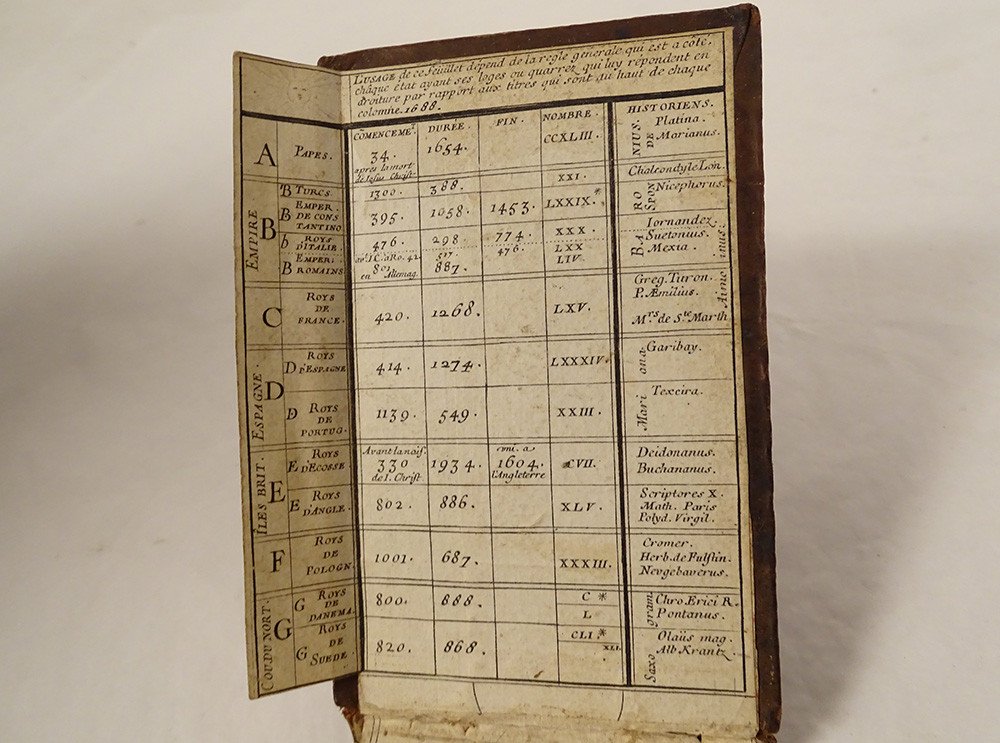 L'USAGE de ce feüillet dépend de la regle generale qui est a côté.
chaque état ayant ses loges ou quarrez qui luy répondent en
droiture par rapport aux titres qui sont au haut de chaque
colomne. 1688.
COMENCEMET. DURÉE. FIN. NOMBRE HISTORIENS.
A PAPES. 34. 1654. CCXLIII. Platina.
après la mort de Jesus Christ NIUS. DE Marianus.
EMPIRE B
B TURCS. 1300. 388. XXI. Chalcondyle Lon.
B EMPER. DE CONSTANTINO 395. 1058. 1453. LXXIX.* Nicephorus.
RO SPON
b ROYS D'ITALIE 476. 298. 774. XXX. Iornandez.
BA Suetonius.
B EMPER. ROMAINS av. I.C. à Ro. 42 517 476. LXX Mexia.
en 801 Allemag. 887. LIV.
C ROYS DE FRANCE. 420. 1268. LXV. Greg. Turon.
P. Æmilius.
Mrs. de Ste. Marth
Aimoinus.
ESPAGNE. D
D ROYS D'ESPAGNE 414. 1274. LXXXIV. Garibay.
D ROYS DE PORTUG. 1139. 549. XXIII. Texcira.
Mariana
ÎLES BRIT. E
E ROYS D'ECOSSE Avant la nais. 330 de I. Christ 1934. 1604. l'Angleterre CVII. Deidonanus.
Buchananus.
E ROYS D'ANGLE. 802. 886. XLV. Scriptores X.
Math. Paris
Polyd. Virgil.
F ROYS DE POLOGN. 1001. 687. XXXIII. Cromer.
Herb. de Fulstin.
Nevgebaverus.
COU. DU NORT. G
G ROYS DE DANEMA. 800. 888. C * Chro. Erici R.
L. Pontanus.
G ROYS DE SUEDE. 820. 868. CLI * XLI. Olaüs mag.
Alb Krantz
Saxo gram